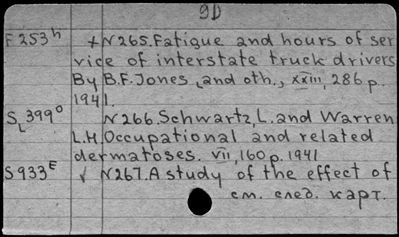 9D
F253ʰ +N265. Fatigue and hours of ser
vice of interstate truck drivers
By B.F. Jones, and oth., xxiii, 286 p.
1941.
S_L399⁰ N266. Schwartz, L. and Warren
L.H. Occupational and related
dermatoses. vii, 160 p. 1941
S933ᴱ N267. A study of the effect of
см. след. карт.